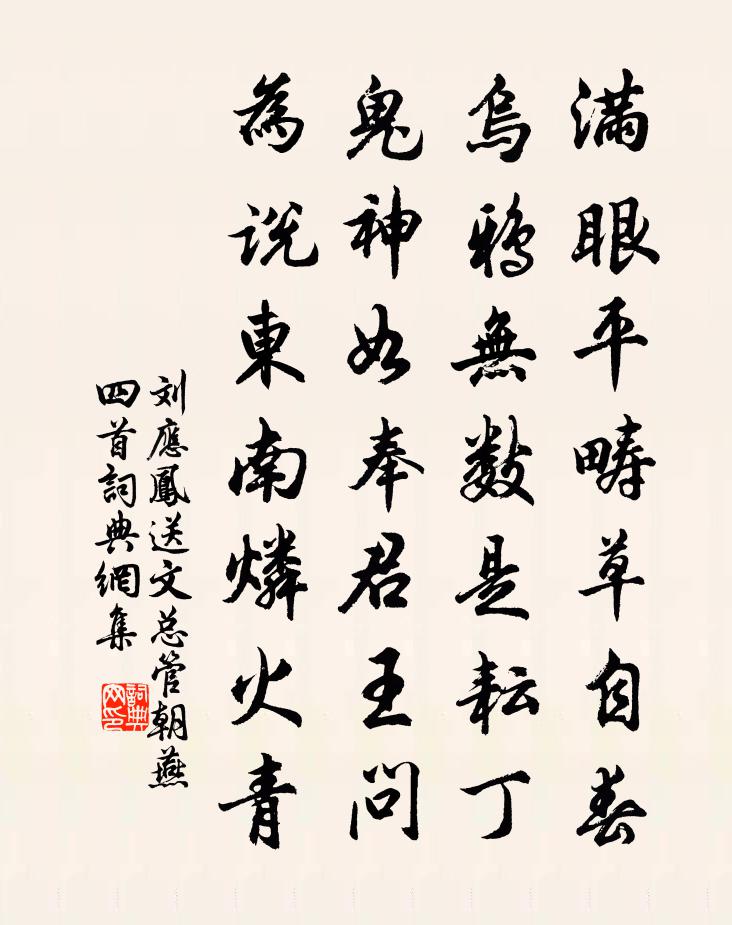 满眼平畴草自春
烏鸦無数是耘丁
鬼神如奉君王問
為说東南燐火青
刘應鳳送文总管朝燕
四首詞典網集
詞典
网印